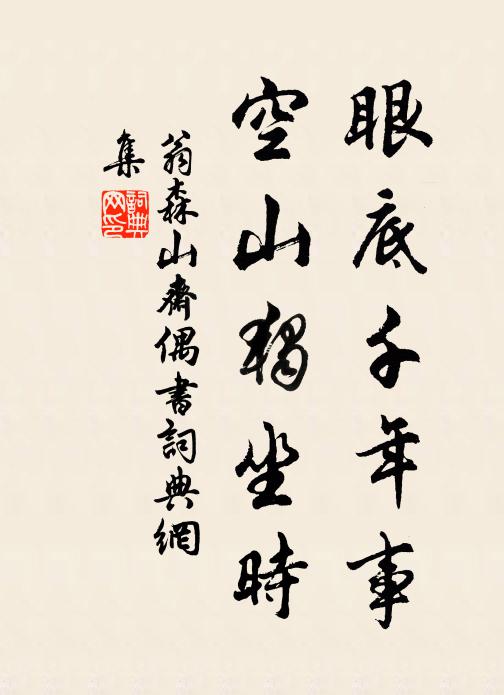 眼底千年事
空山獨坐時
翁森山齋偶書詞典網
集
詞典
网印